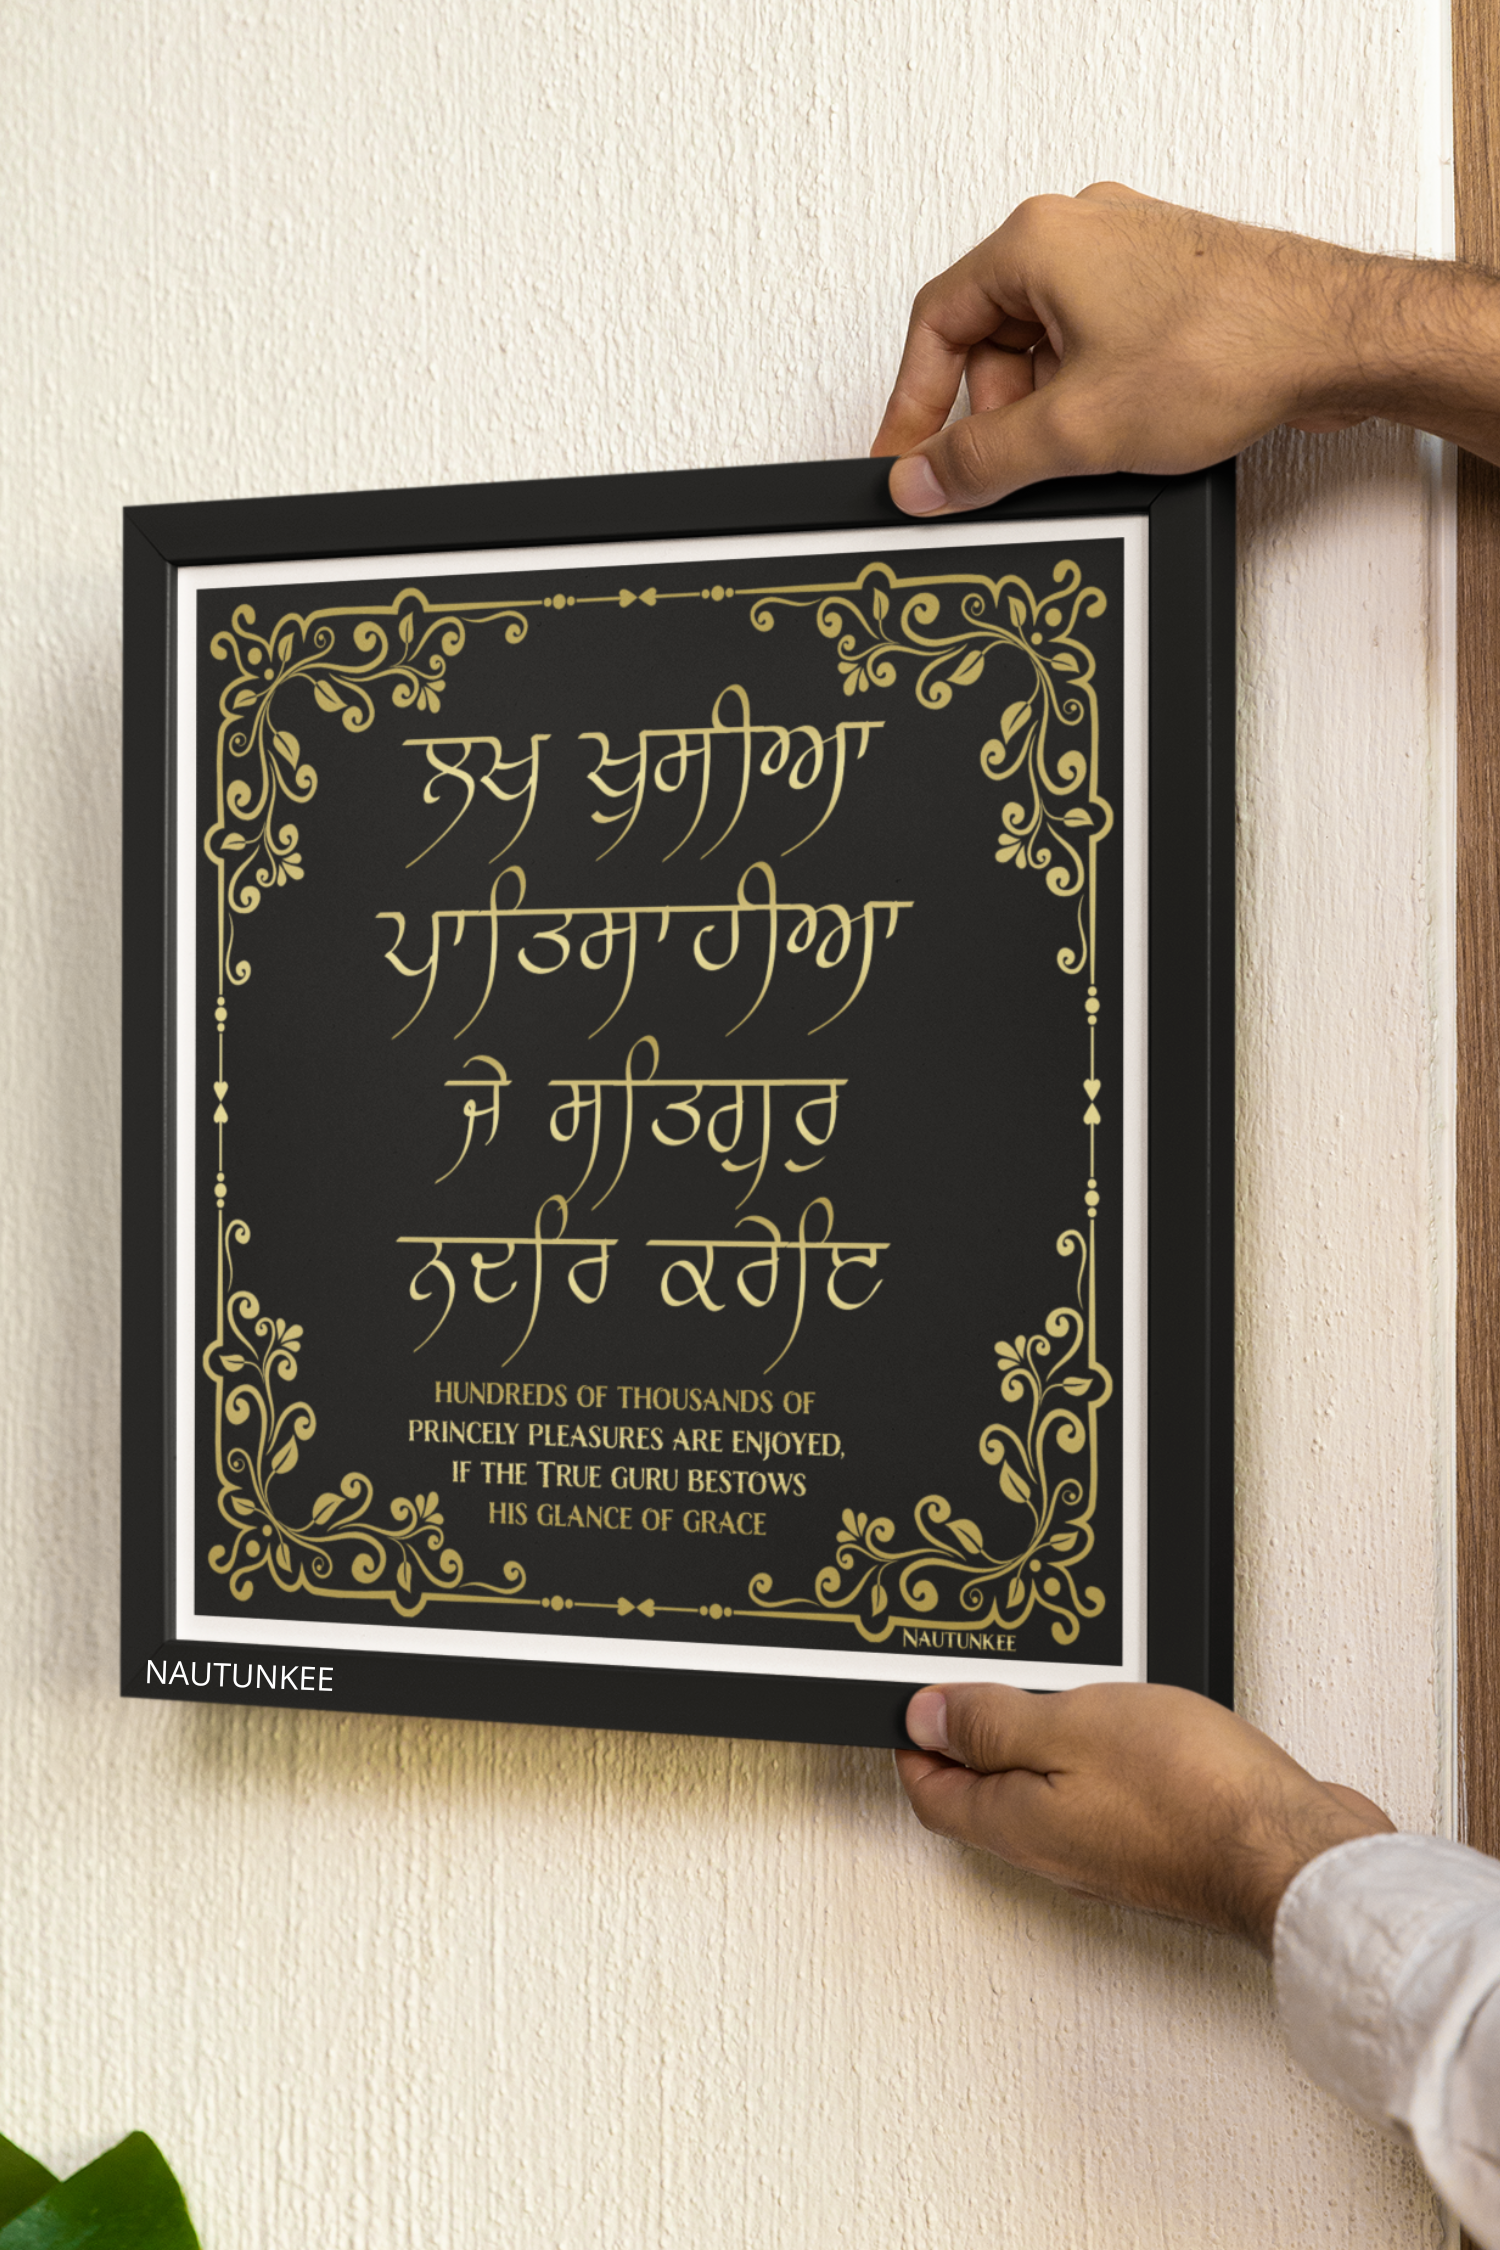 ਲਖ ਖੁਸੀਆ
ਪਾਤਿਸਾਹੀਆ
ਜੇ ਸਤਿਗੁਰੁ
ਨਦਰਿ ਕਰੇਇ
HUNDREDS OF THOUSANDS OF
PRINCELY PLEASURES ARE ENJOYED,
IF THE TRUE GURU BESTOWS
HIS GLANCE OF GRACE
NAUTUNKEE
NAUTUNKEE